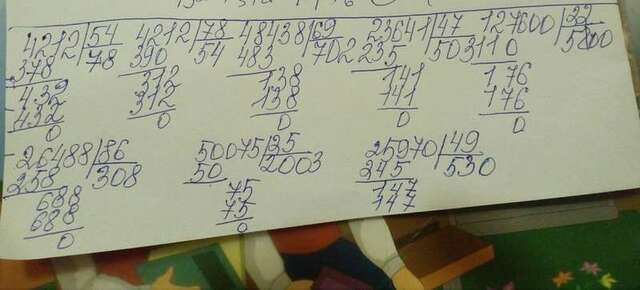 4212|54 4212|78 48438|69 23641|47 127600|22
378 78 390 54 483 702 235 503 110 5800
432 312 138 141 176
432 312 138 141 176
0 0 0 0 0
26488|86 50075|25 25970|49
258 308 50 2003 245 530
688 75 147
688 75 147
0 0